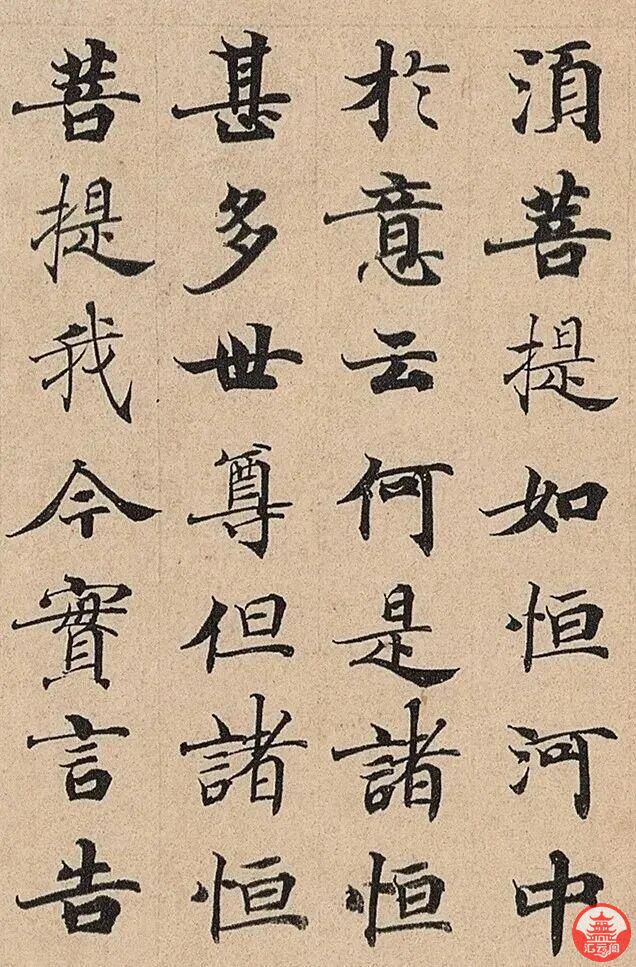 須菩提如恒河中
於意云何是諸恒
甚多世尊但諸恒
菩提我今實言告
汇云阁